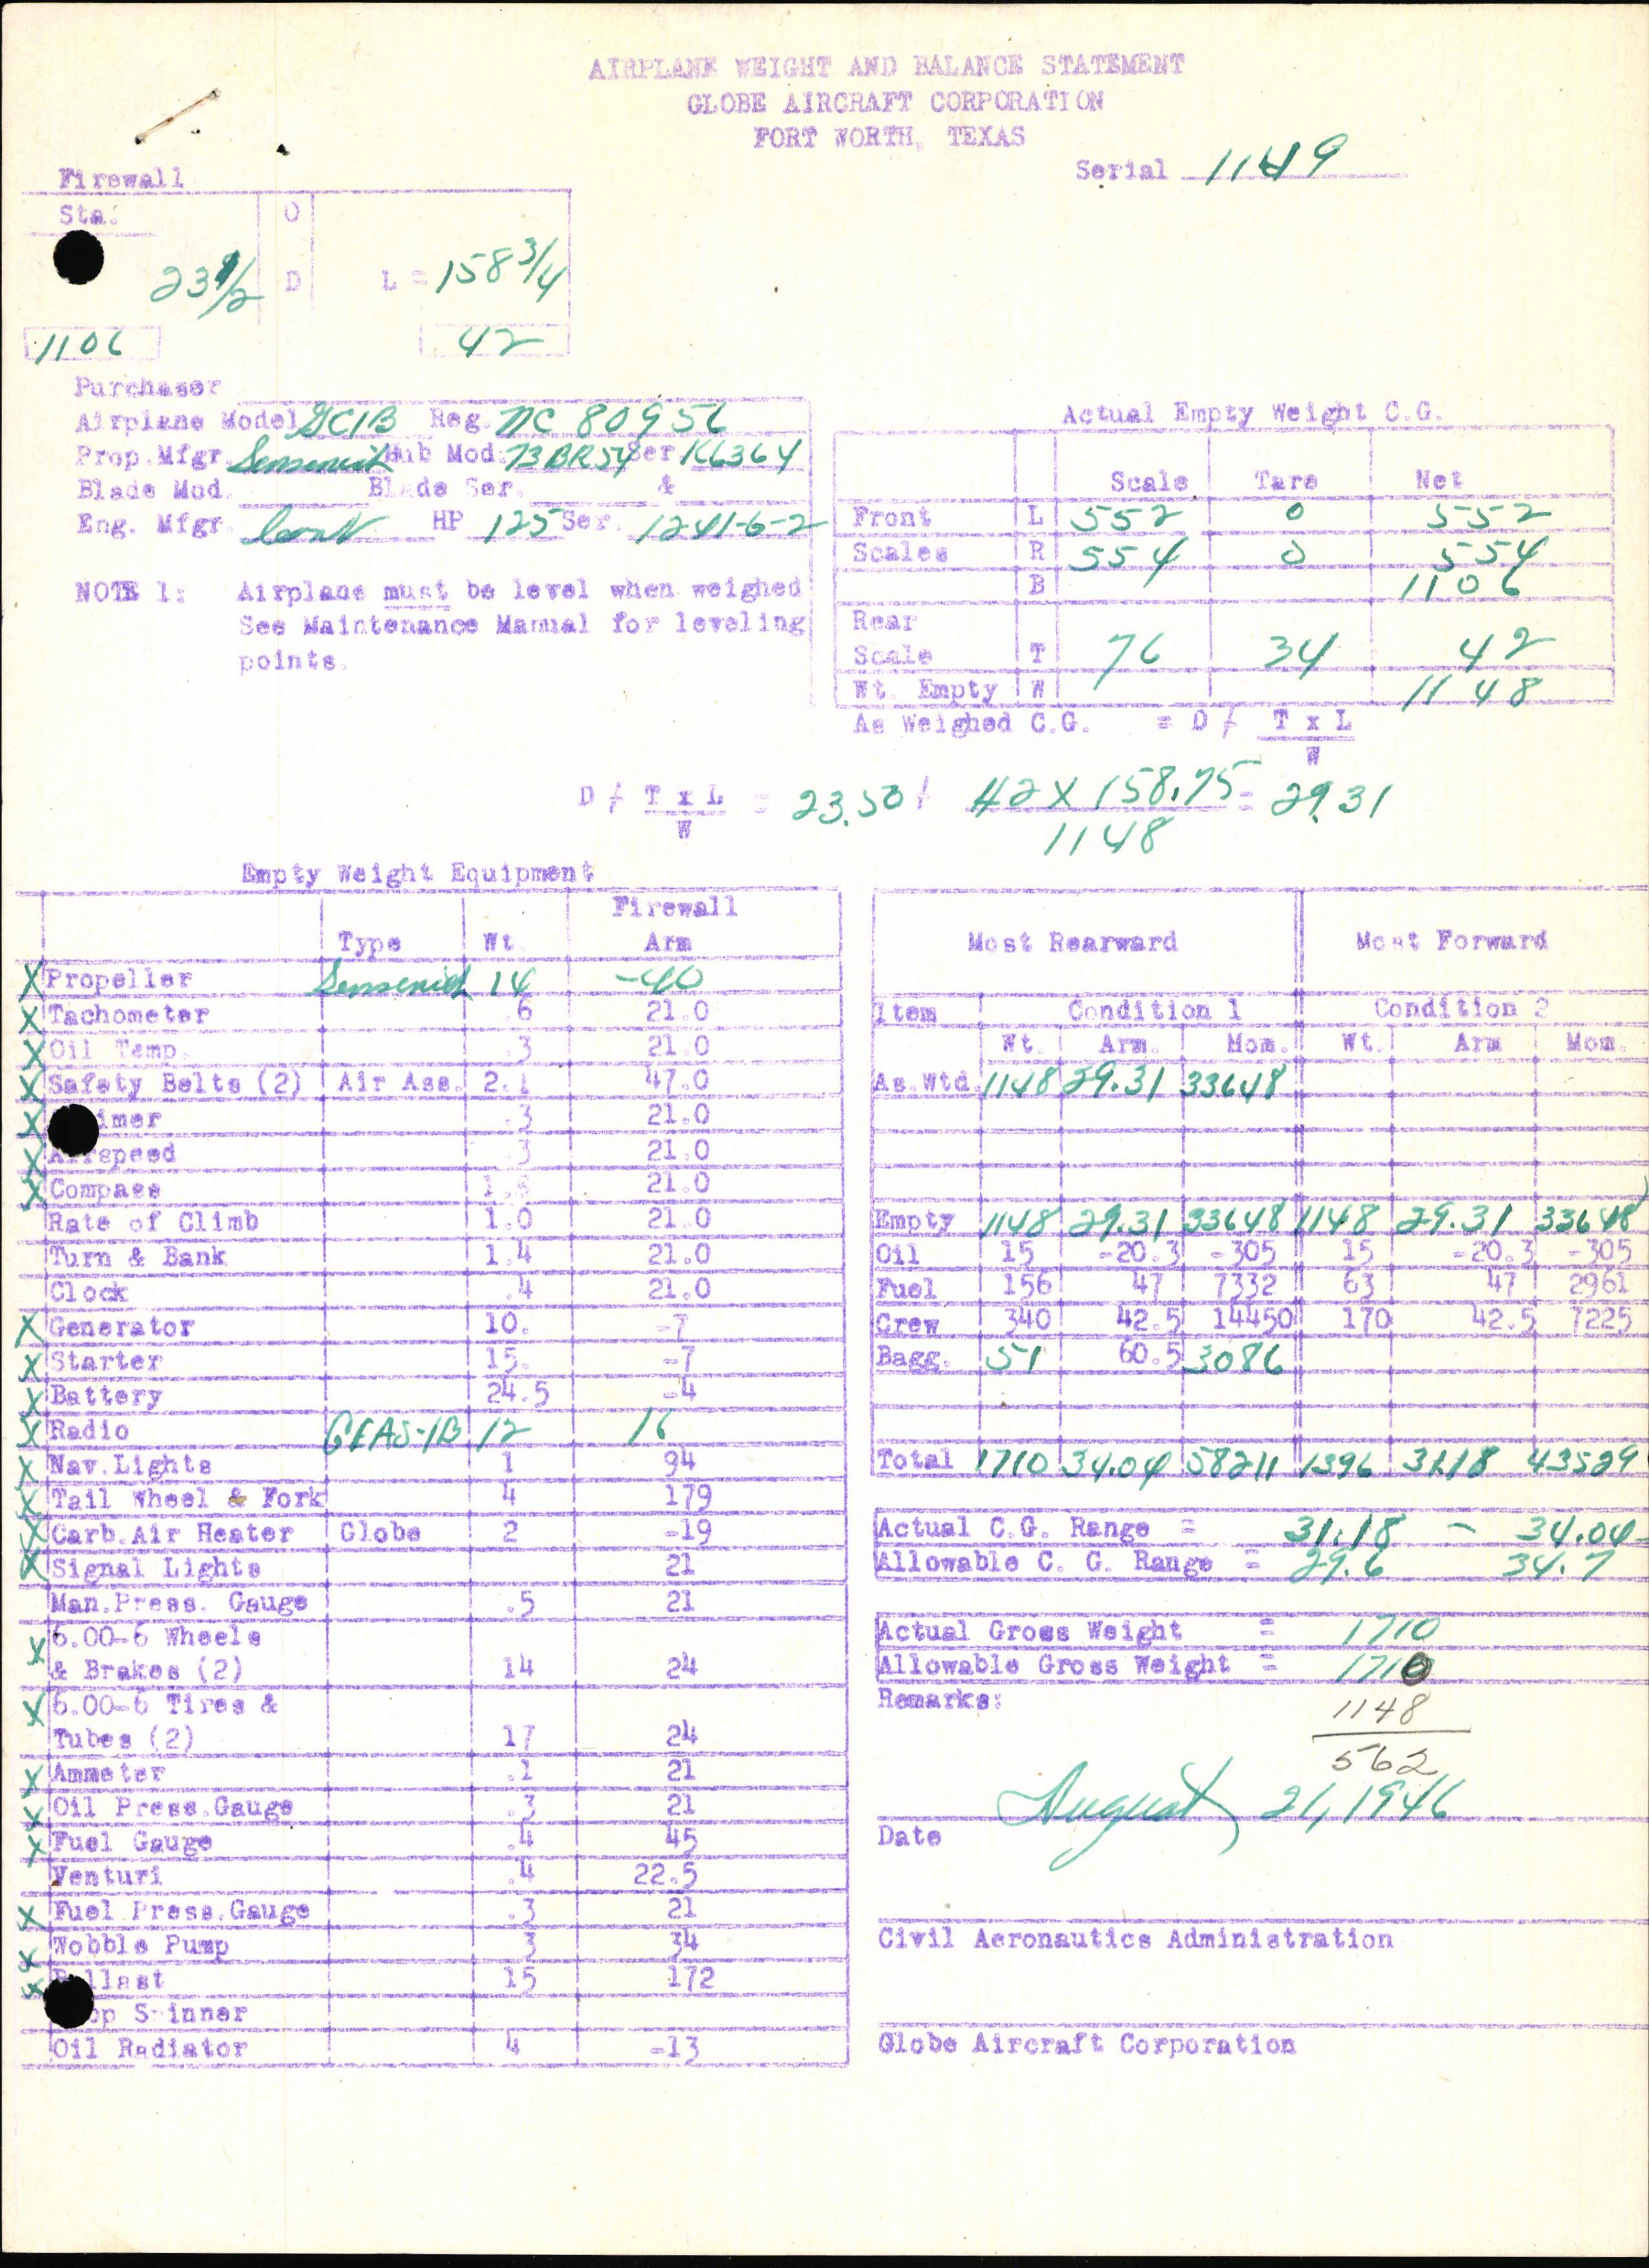 AIRPLANE WEIGHT AND BALANCE STATEMENT
GLOBE AIRCRAFT CORPORATION
FORT WORTH, TEXAS
Serial 1149
Firewall
Sta. O
23 1/2 D L = 158 3/4
1106 42
Purchaser
Airplane Model GC1B Reg. NC 80956
Prop.Mfgr. Sensenich Hub Mod. 73BR54 Ser K6364
Blade Mod. Blade Ser. &
Eng. Mfgr. Cont HP 125 Ser. 1241-6-2
NOTE 1: Airplane must be level when weighed
See Maintenance Manual for leveling
points.
Actual Empty Weight C.G.
Scale Tare Net
Front L 552 0 552
Scales R 554 0 554
B 1106
Rear
Scale T 76 34 42
Wt. Empty W 1148
As Weighed C.G. = D / T x L
W
D / T x L = 23.50 / 42 X 158.75 = 29.31
W 1148
Empty Weight Equipment
Firewall
Type Wt. Arm
X Propeller Sensenich 14 -40
X Tachometer .6 21.0
X Oil Temp. .3 21.0
X Safety Belts (2) Air Ass. 2.1 47.0
X imer .3 21.0
X Airspeed .3 21.0
X Compass 21.0
Rate of Climb 1.0 21.0
Turn & Bank 1.4 21.0
Clock .4 21.0
X Generator 10. -7
X Starter 15. -7
X Battery 24.5 -4
X Radio GEAS-1B 12 16
X Nav.Lights 1 94
X Tail Wheel & Fork 4 179
X Carb.Air Heater Globe 2 -19
X Signal Lights 21
Man.Press. Gauge .5 21
X 6.00-6 Wheels
& Brakes (2) 14 24
X 6.00-6 Tires &
Tubes (2) 17 24
X Ammeter .1 21
X Oil Press.Gauge .3 21
X Fuel Gauge .4 45
Venturi .4 22.5
X Fuel Press.Gauge .3 21
X Wobble Pump 3 34
X Ballast 15 172
op Spinner
Oil Radiator 4 -13
Most Rearward Most Forward
Item Condition 1 Condition 2
Wt. Arm. Mom. Wt. Arm Mom.
As.Wtd. 1148 29.31 33648
Empty 1148 29.31 33648 1148 29.31 33648
Oil 15 -20.3 -305 15 -20.3 -305
Fuel 156 47 7332 63 47 2961
Crew 340 42.5 14450 170 42.5 7225
Bagg. 51 60.5 3086
Total 1710 34.04 58211 1396 31.18 43529
Actual C.G. Range = 31.18 - 34.04
Allowable C. G. Range = 29.6 34.7
Actual Gross Weight = 1710
Allowable Gross Weight = 1710
Remarks: 1148
562
August 21, 1946
Date
Civil Aeronautics Administration
Globe Aircraft Corporation